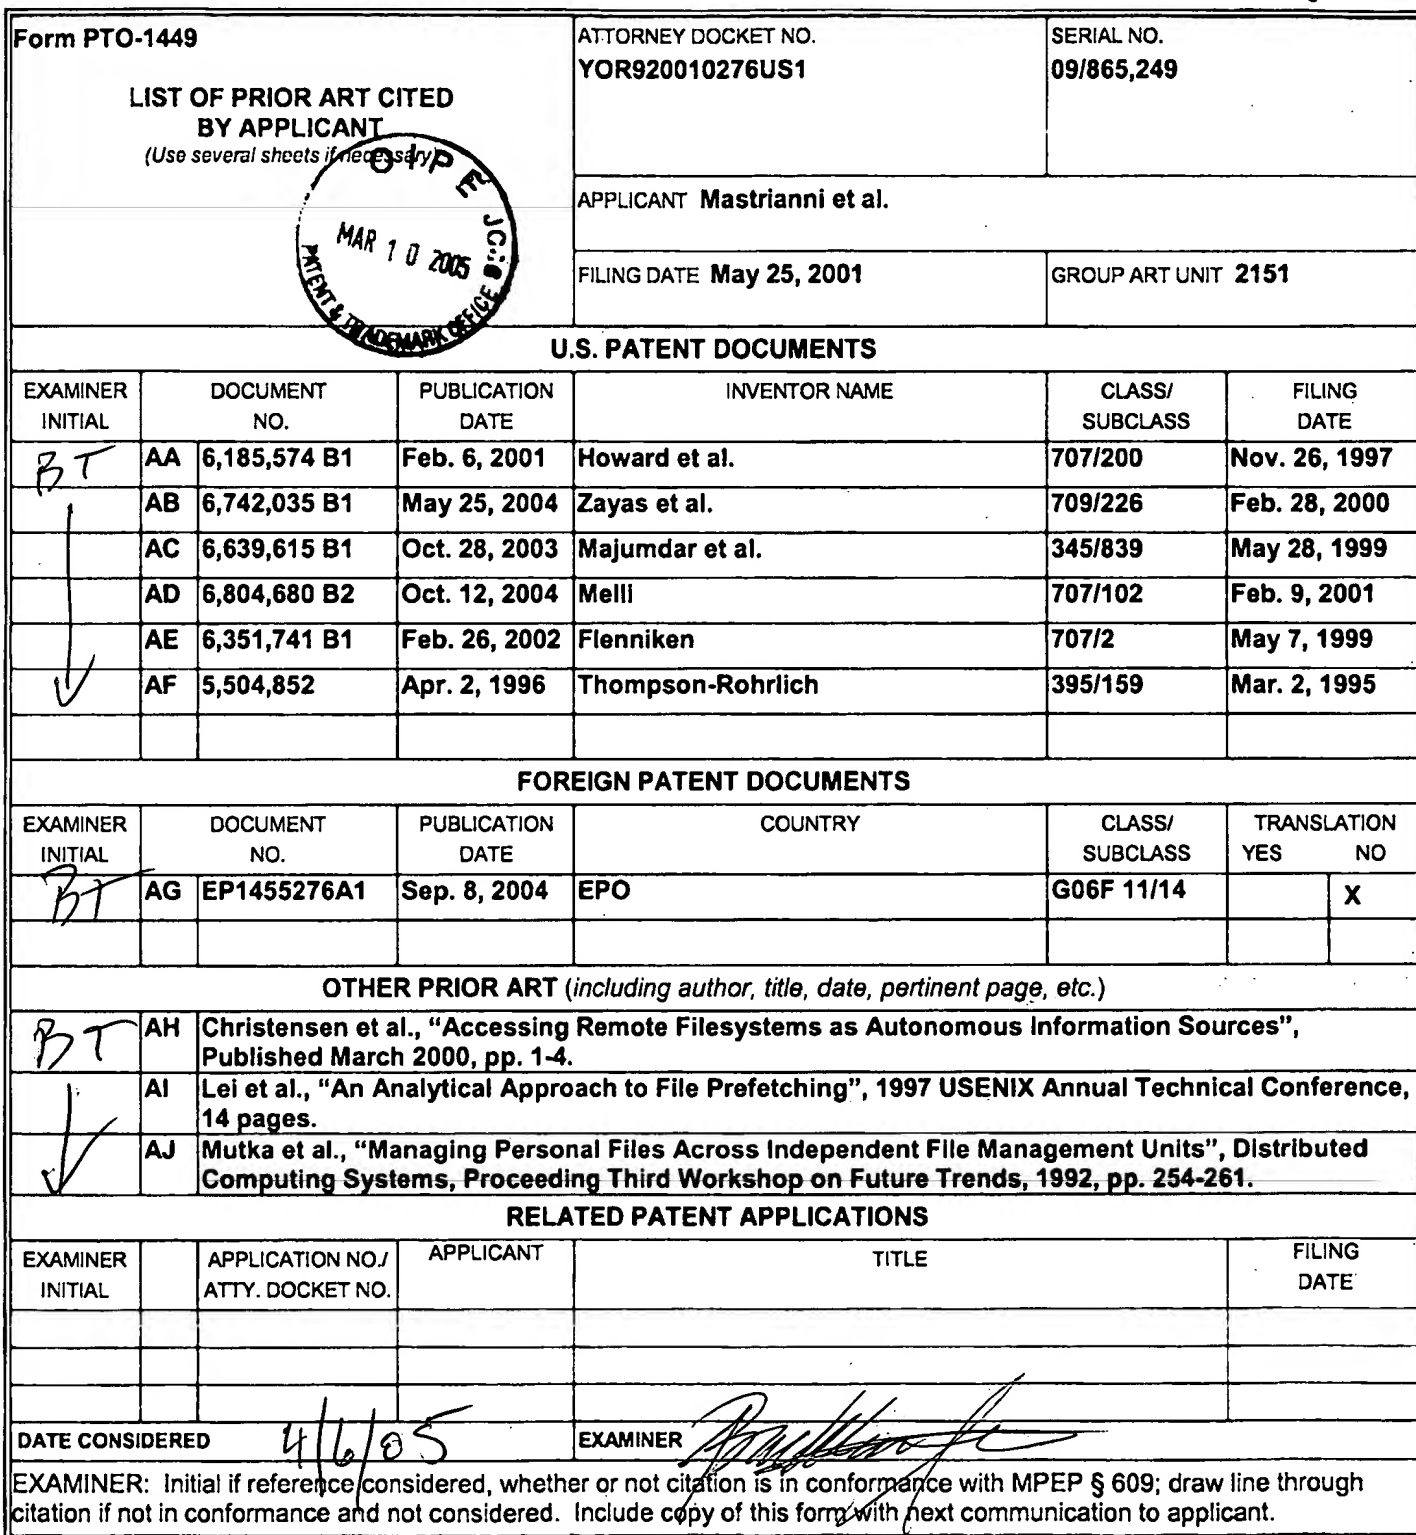 Form PTO-1449
LIST OF PRIOR ART CITED
BY APPLICANT
(Use several sheets if necessary)
ATTORNEY DOCKET NO.
YOR920010276US1
SERIAL NO.
09/865,249
APPLICANT Mastrianni et al.
FILING DATE May 25, 2001
GROUP ART UNIT 2151
OIPE
MAR 10 2005
PATENT & TRADEMARK OFFICE
U.S. PATENT DOCUMENTS
EXAMINER INITIAL DOCUMENT NO. PUBLICATION DATE INVENTOR NAME CLASS/ SUBCLASS FILING DATE
BT AA 6,185,574 B1 Feb. 6, 2001 Howard et al. 707/200 Nov. 26, 1997
AB 6,742,035 B1 May 25, 2004 Zayas et al. 709/226 Feb. 28, 2000
AC 6,639,615 B1 Oct. 28, 2003 Majumdar et al. 345/839 May 28, 1999
AD 6,804,680 B2 Oct. 12, 2004 Melli 707/102 Feb. 9, 2001
AE 6,351,741 B1 Feb. 26, 2002 Flenniken 707/2 May 7, 1999
AF 5,504,852 Apr. 2, 1996 Thompson-Rohrlich 395/159 Mar. 2, 1995
FOREIGN PATENT DOCUMENTS
EXAMINER INITIAL DOCUMENT NO. PUBLICATION DATE COUNTRY CLASS/ SUBCLASS TRANSLATION YES NO
BT AG EP1455276A1 Sep. 8, 2004 EPO G06F 11/14 X
OTHER PRIOR ART (including author, title, date, pertinent page, etc.)
BT AH Christensen et al., “Accessing Remote Filesystems as Autonomous Information Sources”,
Published March 2000, pp. 1-4.
AI Lei et al., “An Analytical Approach to File Prefetching”, 1997 USENIX Annual Technical Conference,
14 pages.
AJ Mutka et al., “Managing Personal Files Across Independent File Management Units”, Distributed
Computing Systems, Proceeding Third Workshop on Future Trends, 1992, pp. 254-261.
RELATED PATENT APPLICATIONS
EXAMINER INITIAL APPLICATION NO./ ATTY. DOCKET NO. APPLICANT TITLE FILING DATE
DATE CONSIDERED 4/6/05 EXAMINER
EXAMINER: Initial if reference considered, whether or not citation is in conformance with MPEP § 609; draw line through
citation if not in conformance and not considered. Include copy of this form with next communication to applicant.